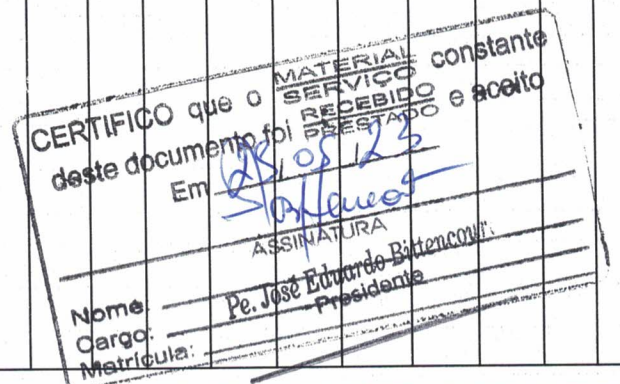 CERTIFICO que o MATERIAL SERVIÇO constante
deste documento foi RECEBIDO PRESTADO e aceito
Em / 05 / 23
ASSINATURA
Nome: Pe. José Eduardo Bittencour
Cargo: Presidente
Matrícula: